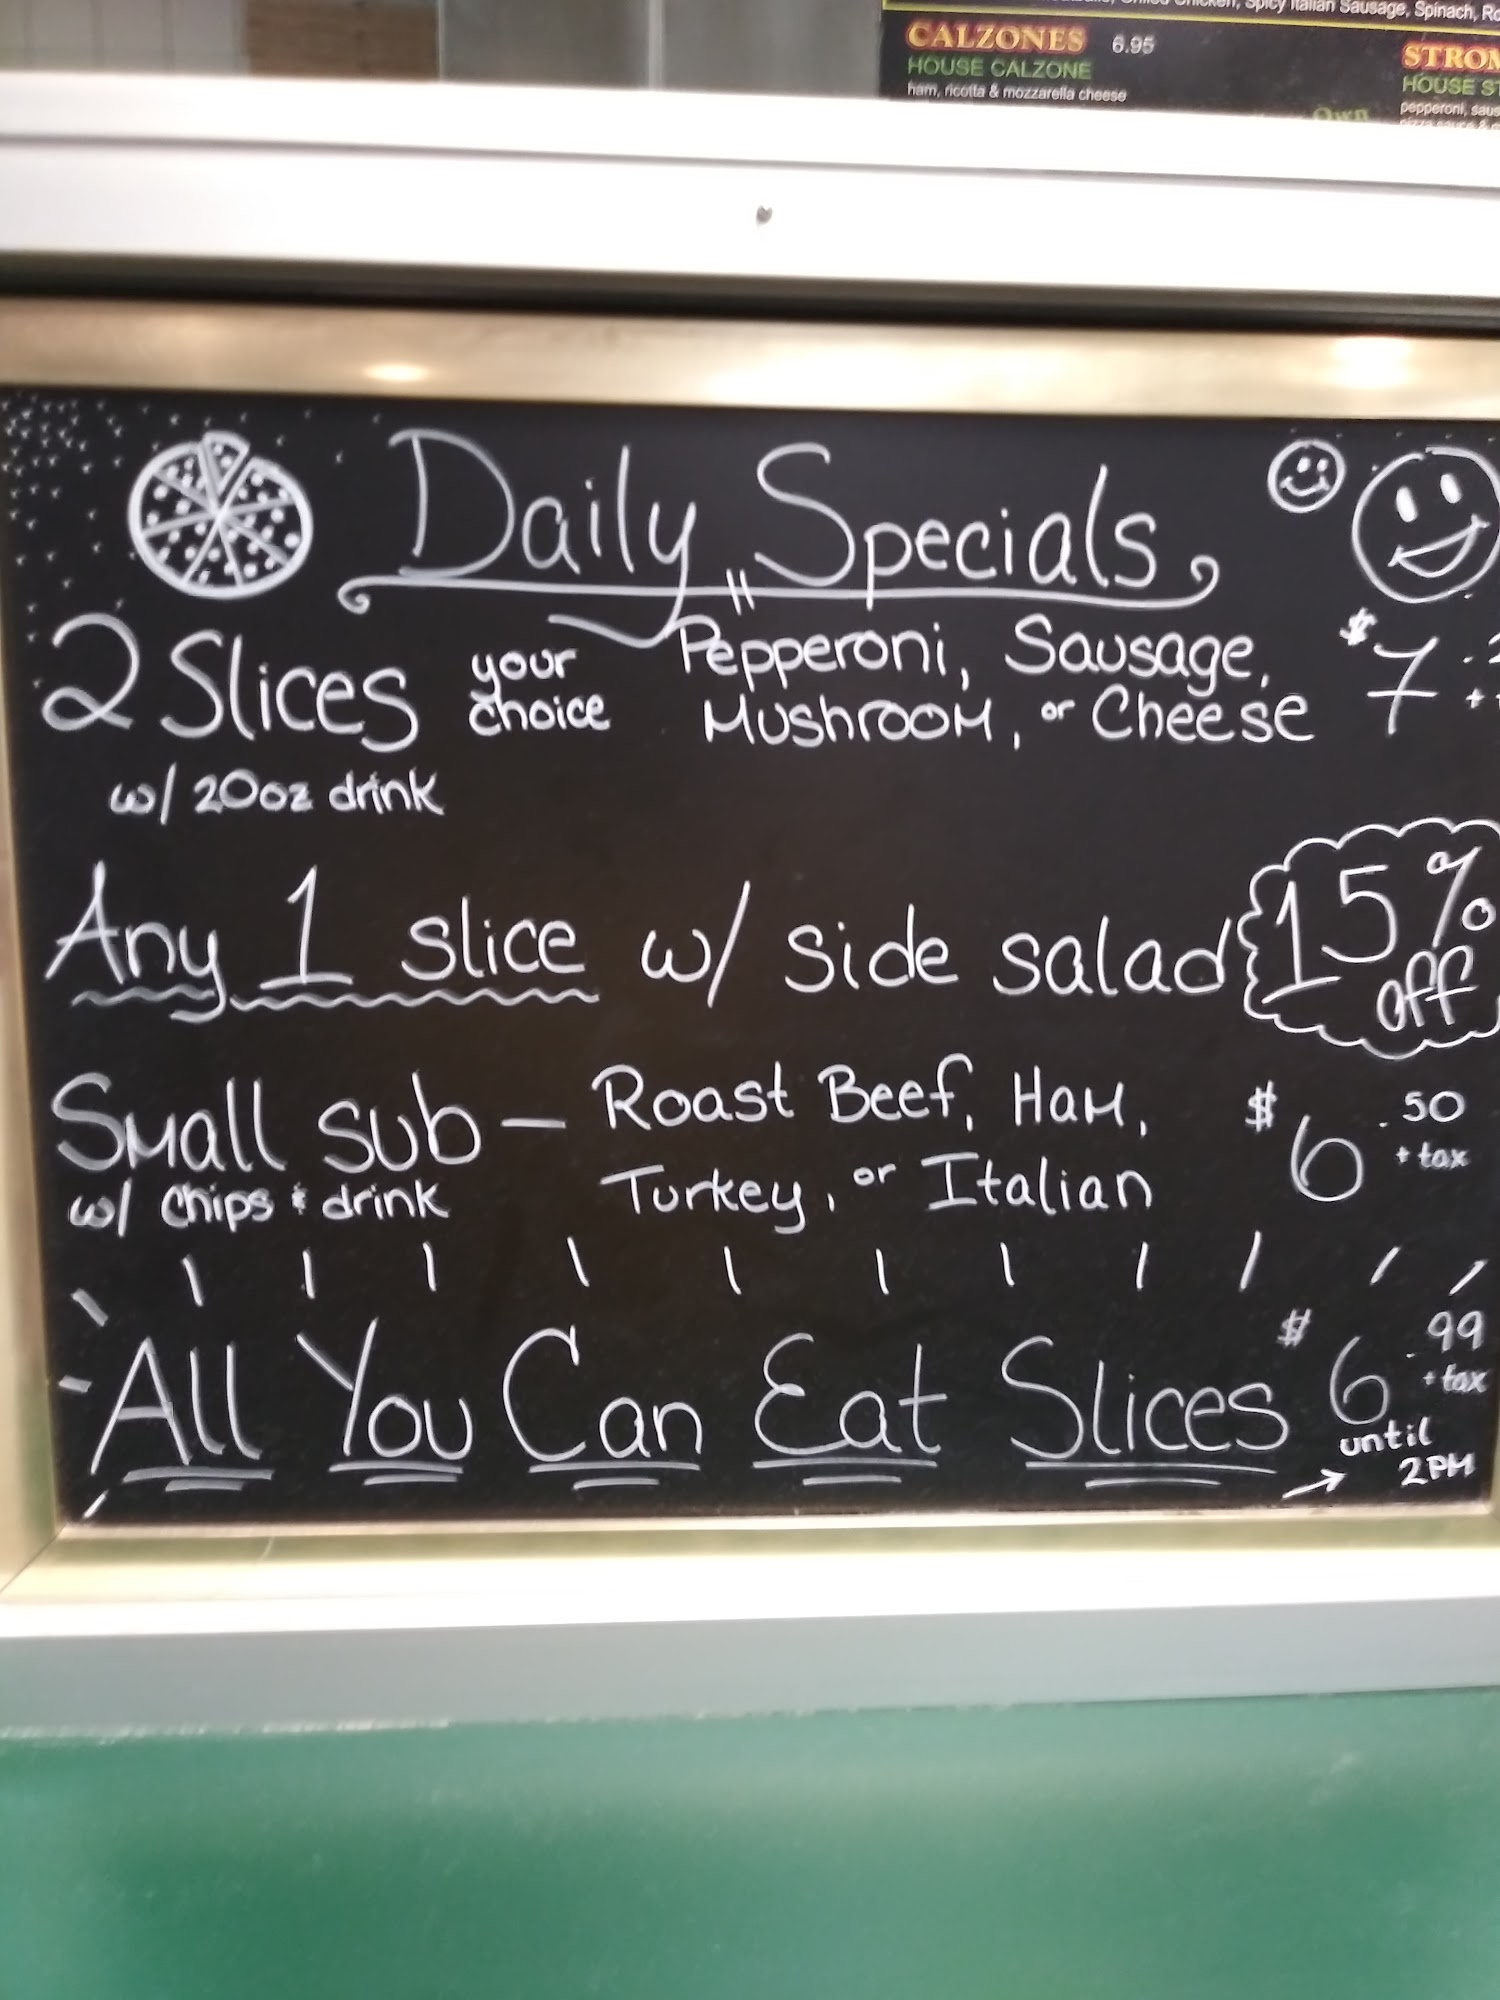 Spicy Italian Sausage, Spinach,
CALZONES 6.95
HOUSE CALZONE
ham, ricotta & mozzarella cheese
HOUSE
pepperoni,
Own
Daily Specials
2 Slices your choice Pepperoni, Sausage, $7
Mushroom, or Cheese
w/ 20oz drink
Any 1 slice w/ side salad 15% off
Small sub - Roast Beef, Ham, $6.50 + tax
w/ chips & drink Turkey, or Italian
All You Can Eat Slices $6.99 + tax
until
2PM